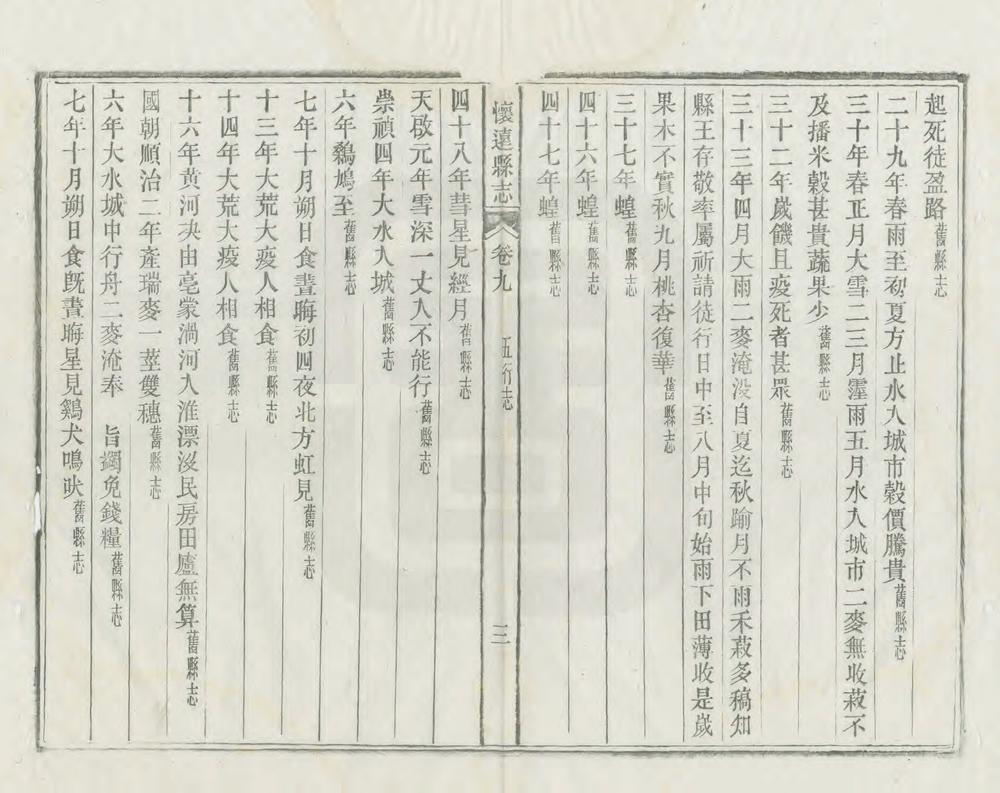 起死徒盈路舊縣志
二十九年春雨至初夏方止水入城市穀價騰貴舊縣志
三十年春正月大雪二三月霪雨五月水入城市二麥無收菽不
及播米穀甚貴蔬果少舊縣志
三十二年歲饑且疫死者甚眾舊縣志
三十三年四月大雨二麥淹没自夏迄秋踰月不雨禾菽多稿知
縣王存敬率屬祈請徒行日中至八月中旬始雨下田薄收是歲
果木不實秋九月桃杏復華舊縣志
三十七年蝗舊縣志
四十六年蝗舊縣志
四十七年蝗舊縣志
懷遠縣志 卷九 五行志 三
四十八年彗星見經月舊縣志
天啟元年雪深一丈人不能行舊縣志
崇禎四年大水入城舊縣志
六年鷄鳩至舊縣志
七年十月朔日食晝晦初四夜北方虹見舊縣志
十三年大荒大疫人相食舊縣志
十四年大荒大疫人相食舊縣志
十六年黄河決由亳蒙渦河入淮漂沒民房田廬無算舊縣志
國朝順治二年產瑞麥一莖雙穗舊縣志
六年大水城中行舟二麥淹奉 旨蠲免錢糧舊縣志
七年十月朔日食既晝晦星見鷄犬鳴吠舊縣志